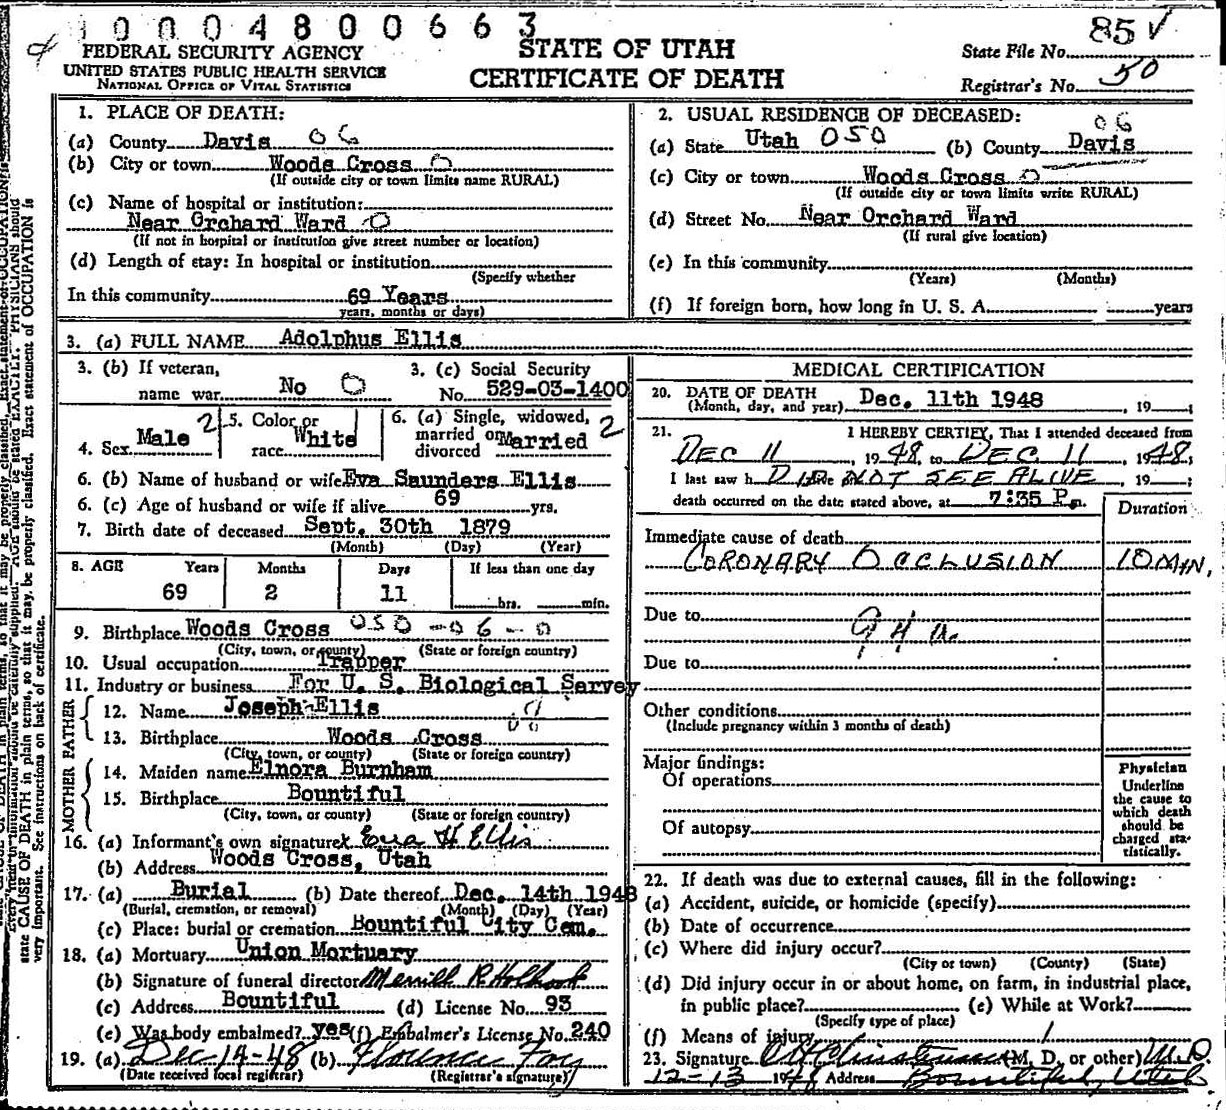 1000480 0 6 6 3
85 ✓
FEDERAL SECURITY AGENCY
UNITED STATES PUBLIC HEALTH SERVICE
NATIONAL OFFICE OF VITAL STATISTICS
STATE OF UTAH
CERTIFICATE OF DEATH
State File No.
Registrar's No. 50
1. PLACE OF DEATH:
(a) County Davis 06
(b) City or town Woods Cross 0
(If outside city or town limits name RURAL)
(c) Name of hospital or institution:
Near Orchard Ward 0
(If not in hospital or institution give street number or location)
(d) Length of stay: In hospital or institution
(Specify whether
In this community 69 Years
years, months or days)
2. USUAL RESIDENCE OF DECEASED:
(a) State Utah 050 (b) County Davis 06
(c) City or town Woods Cross 0
(If outside city or town limits write RURAL)
(d) Street No. Near Orchard Ward
(If rural give location)
(e) In this community
(Years) (Months)
(f) If foreign born, how long in U. S. A. years
3. (a) FULL NAME Adolphus Ellis
3. (b) If veteran,
name war No 0
3. (c) Social Security
No. 529-03-1400
4. Sex Male 2
5. Color or
race White
6. (a) Single, widowed,
married or
divorced Married 2
6. (b) Name of husband or wife Eva Saunders Ellis
6. (c) Age of husband or wife if alive 69 yrs.
7. Birth date of deceased Sept. 30th 1879
(Month) (Day) (Year)
8. AGE Years Months Days If less than one day
69 2 11 hrs. min.
9. Birthplace Woods Cross 050-06-0
(City, town, or county) (State or foreign country)
10. Usual occupation Trapper
11. Industry or business For U. S. Biological Servey
FATHER
12. Name Joseph Ellis
13. Birthplace Woods Cross
(City, town, or county) (State or foreign country)
MOTHER
14. Maiden name Elnora Burnham
15. Birthplace Bountiful
(City, town, or county) (State or foreign country)
16. (a) Informant's own signature x Eva H Ellis
(b) Address Woods Cross, Utah
17. (a) Burial (b) Date thereof Dec. 14th 1948
(Burial, cremation, or removal) (Month) (Day) (Year)
(c) Place: burial or cremation Bountiful City Cem.
18. (a) Mortuary Union Mortuary
(b) Signature of funeral director Merrill R Holbrook
(c) Address Bountiful (d) License No. 93
(e) Was body embalmed? yes (f) Embalmer's License No. 240
19. (a) Dec 14-48 (b) Florence Foy
(Date received local registrar) (Registrar's signature)
MEDICAL CERTIFICATION
20. DATE OF DEATH
(Month, day, and year) Dec. 11th 1948 , 19 ;
21. I HEREBY CERTIFY, That I attended deceased from
DEC 11 , 1948, to DEC 11 , 1948;
I last saw h DID NOT SEE ALIVE , 19 ;
death occurred on the date stated above, at 7:35 P.m.
Duration
Immediate cause of death
CORONARY OCCLUSION 10 MIN.
Due to 94a
Due to
Other conditions
(Include pregnancy within 3 months of death)
Major findings:
Of operations
Of autopsy
Physician
Underline
the cause to
which death
should be
charged sta-
tistically.
22. If death was due to external causes, fill in the following:
(a) Accident, suicide, or homicide (specify)
(b) Date of occurrence
(c) Where did injury occur?
(City or town) (County) (State)
(d) Did injury occur in or about home, on farm, in industrial place,
in public place? (e) While at Work?
(Specify type of place)
(f) Means of injury
23. Signature (M. D. or other) M.D.
12-13 1948 Address Bountiful, Utah
state CAUSE OF DEATH in plain terms, so that it may be properly classified. Exact statement of OCCUPATION is
very important. See instructions on back of certificate.